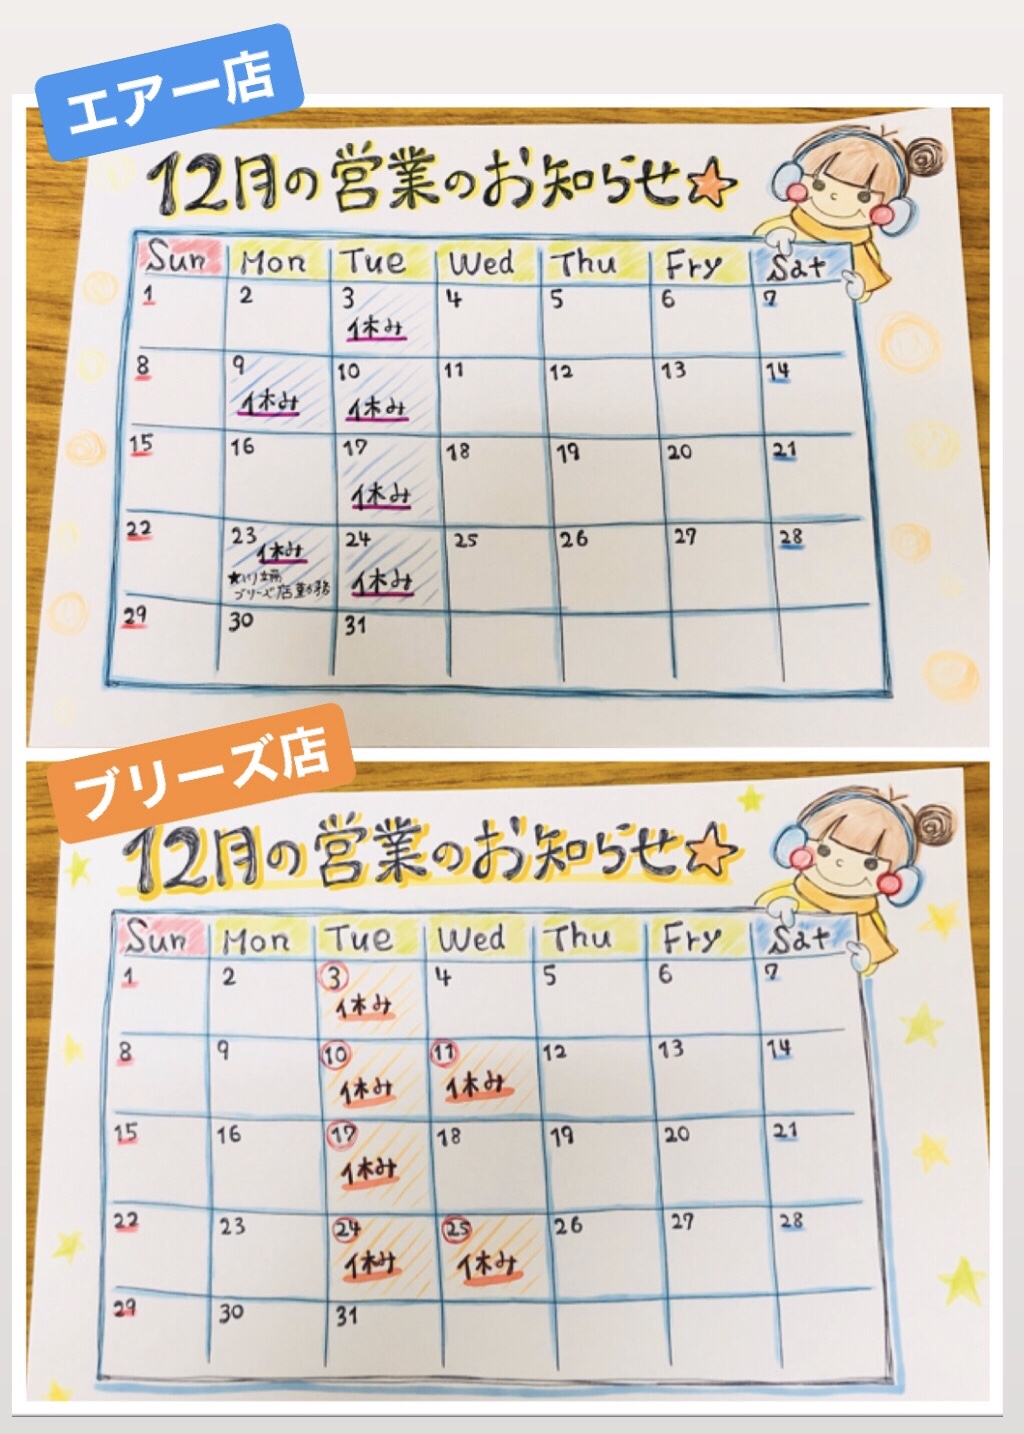 エアー店
12月の営業のお知らせ☆
Sun Mon Tue Wed Thu Fry Sat
1 2 3 4 5 6 7
休み
8 9 10 11 12 13 14
休み 休み
15 16 17 18 19 20 21
休み
22 23 24 25 26 27 28
休み 休み
ブリーズ店勤務
29 30 31
ブリーズ店
12月の営業のお知らせ☆
Sun Mon Tue Wed Thu Fry Sat
1 2 3 4 5 6 7
休み
8 9 10 11 12 13 14
休み 休み
15 16 17 18 19 20 21
休み
22 23 24 25 26 27 28
休み 休み
29 30 31